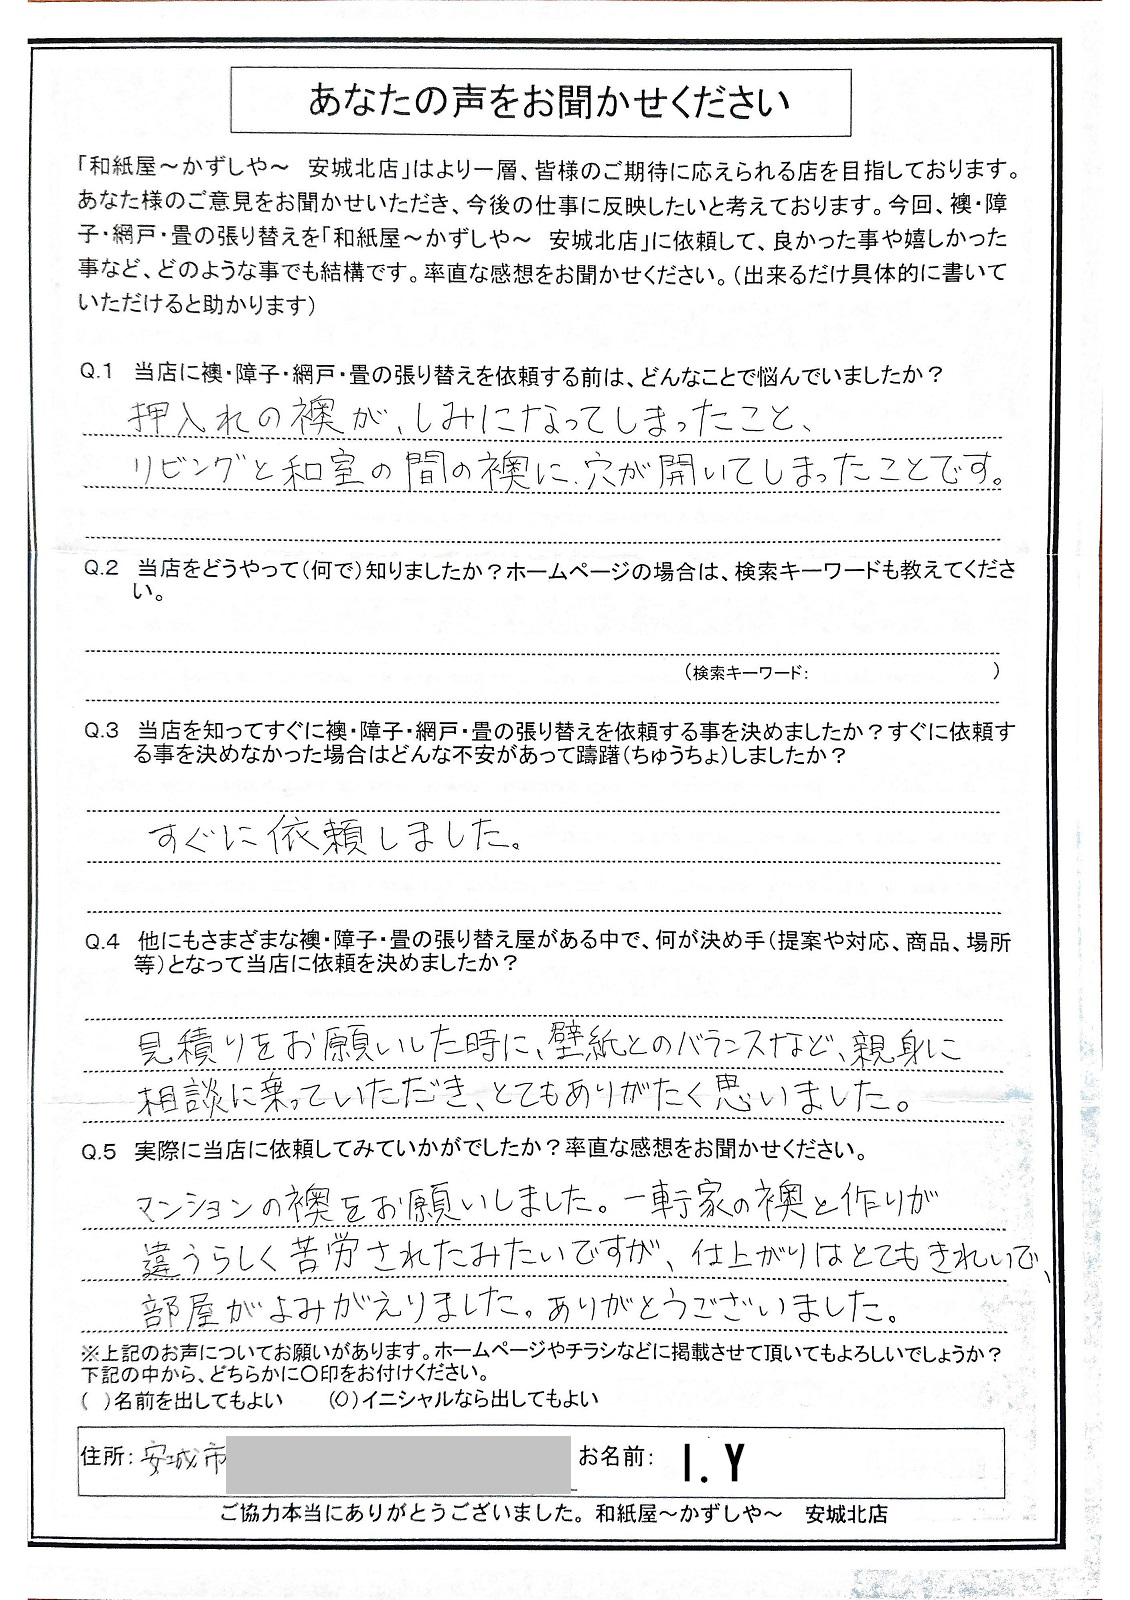 あなたの声をお聞かせください
「和紙屋～かずしや～　安城北店」はより一層、皆様のご期待に応えられる店を目指しております。
あなた様のご意見をお聞かせいただき、今後の仕事に反映したいと考えております。今回、襖・障
子・網戸・畳の張り替えを「和紙屋～かずしや～　安城北店」に依頼して、良かった事や嬉しかった
事など、どのような事でも結構です。率直な感想をお聞かせください。（出来るだけ具体的に書いて
いただけると助かります）
Q.1　当店に襖・障子・網戸・畳の張り替えを依頼する前は、どんなことで悩んでいましたか？
押入れの襖が、しみになってしまったこと、
リビングと和室の間の襖に、穴が開いてしまったことです。
Q.2　当店をどうやって（何で）知りましたか？ホームページの場合は、検索キーワードも教えてくださ
い。
（検索キーワード：　　　　　　　　　　）
Q.3　当店を知ってすぐに襖・障子・網戸・畳の張り替えを依頼する事を決めましたか？すぐに依頼す
る事を決めなかった場合はどんな不安があって躊躇（ちゅうちょ）しましたか？
すぐに依頼しました。
Q.4　他にもさまざまな襖・障子・畳の張り替え屋がある中で、何が決め手（提案や対応、商品、場所
等）となって当店に依頼を決めましたか？
見積りをお願いした時に、壁紙とのバランスなど、親身に
相談に乗っていただき、とてもありがたく思いました。
Q.5　実際に当店に依頼してみていかがでしたか？率直な感想をお聞かせください。
マンションの襖をお願いしました。一軒家の襖と作りが
違うらしく苦労されたみたいですが、仕上がりはとてもきれいで、
部屋がよみがえりました。ありがとうございました。
※上記のお声についてお願いがあります。ホームページやチラシなどに掲載させて頂いてもよろしいでしょうか？
下記の中から、どちらかに〇印をお付けください。
（　）名前を出してもよい　　（〇）イニシャルなら出してもよい
住所：安城市　お名前：　I.Y
ご協力本当にありがとうございました。和紙屋～かずしや～　安城北店